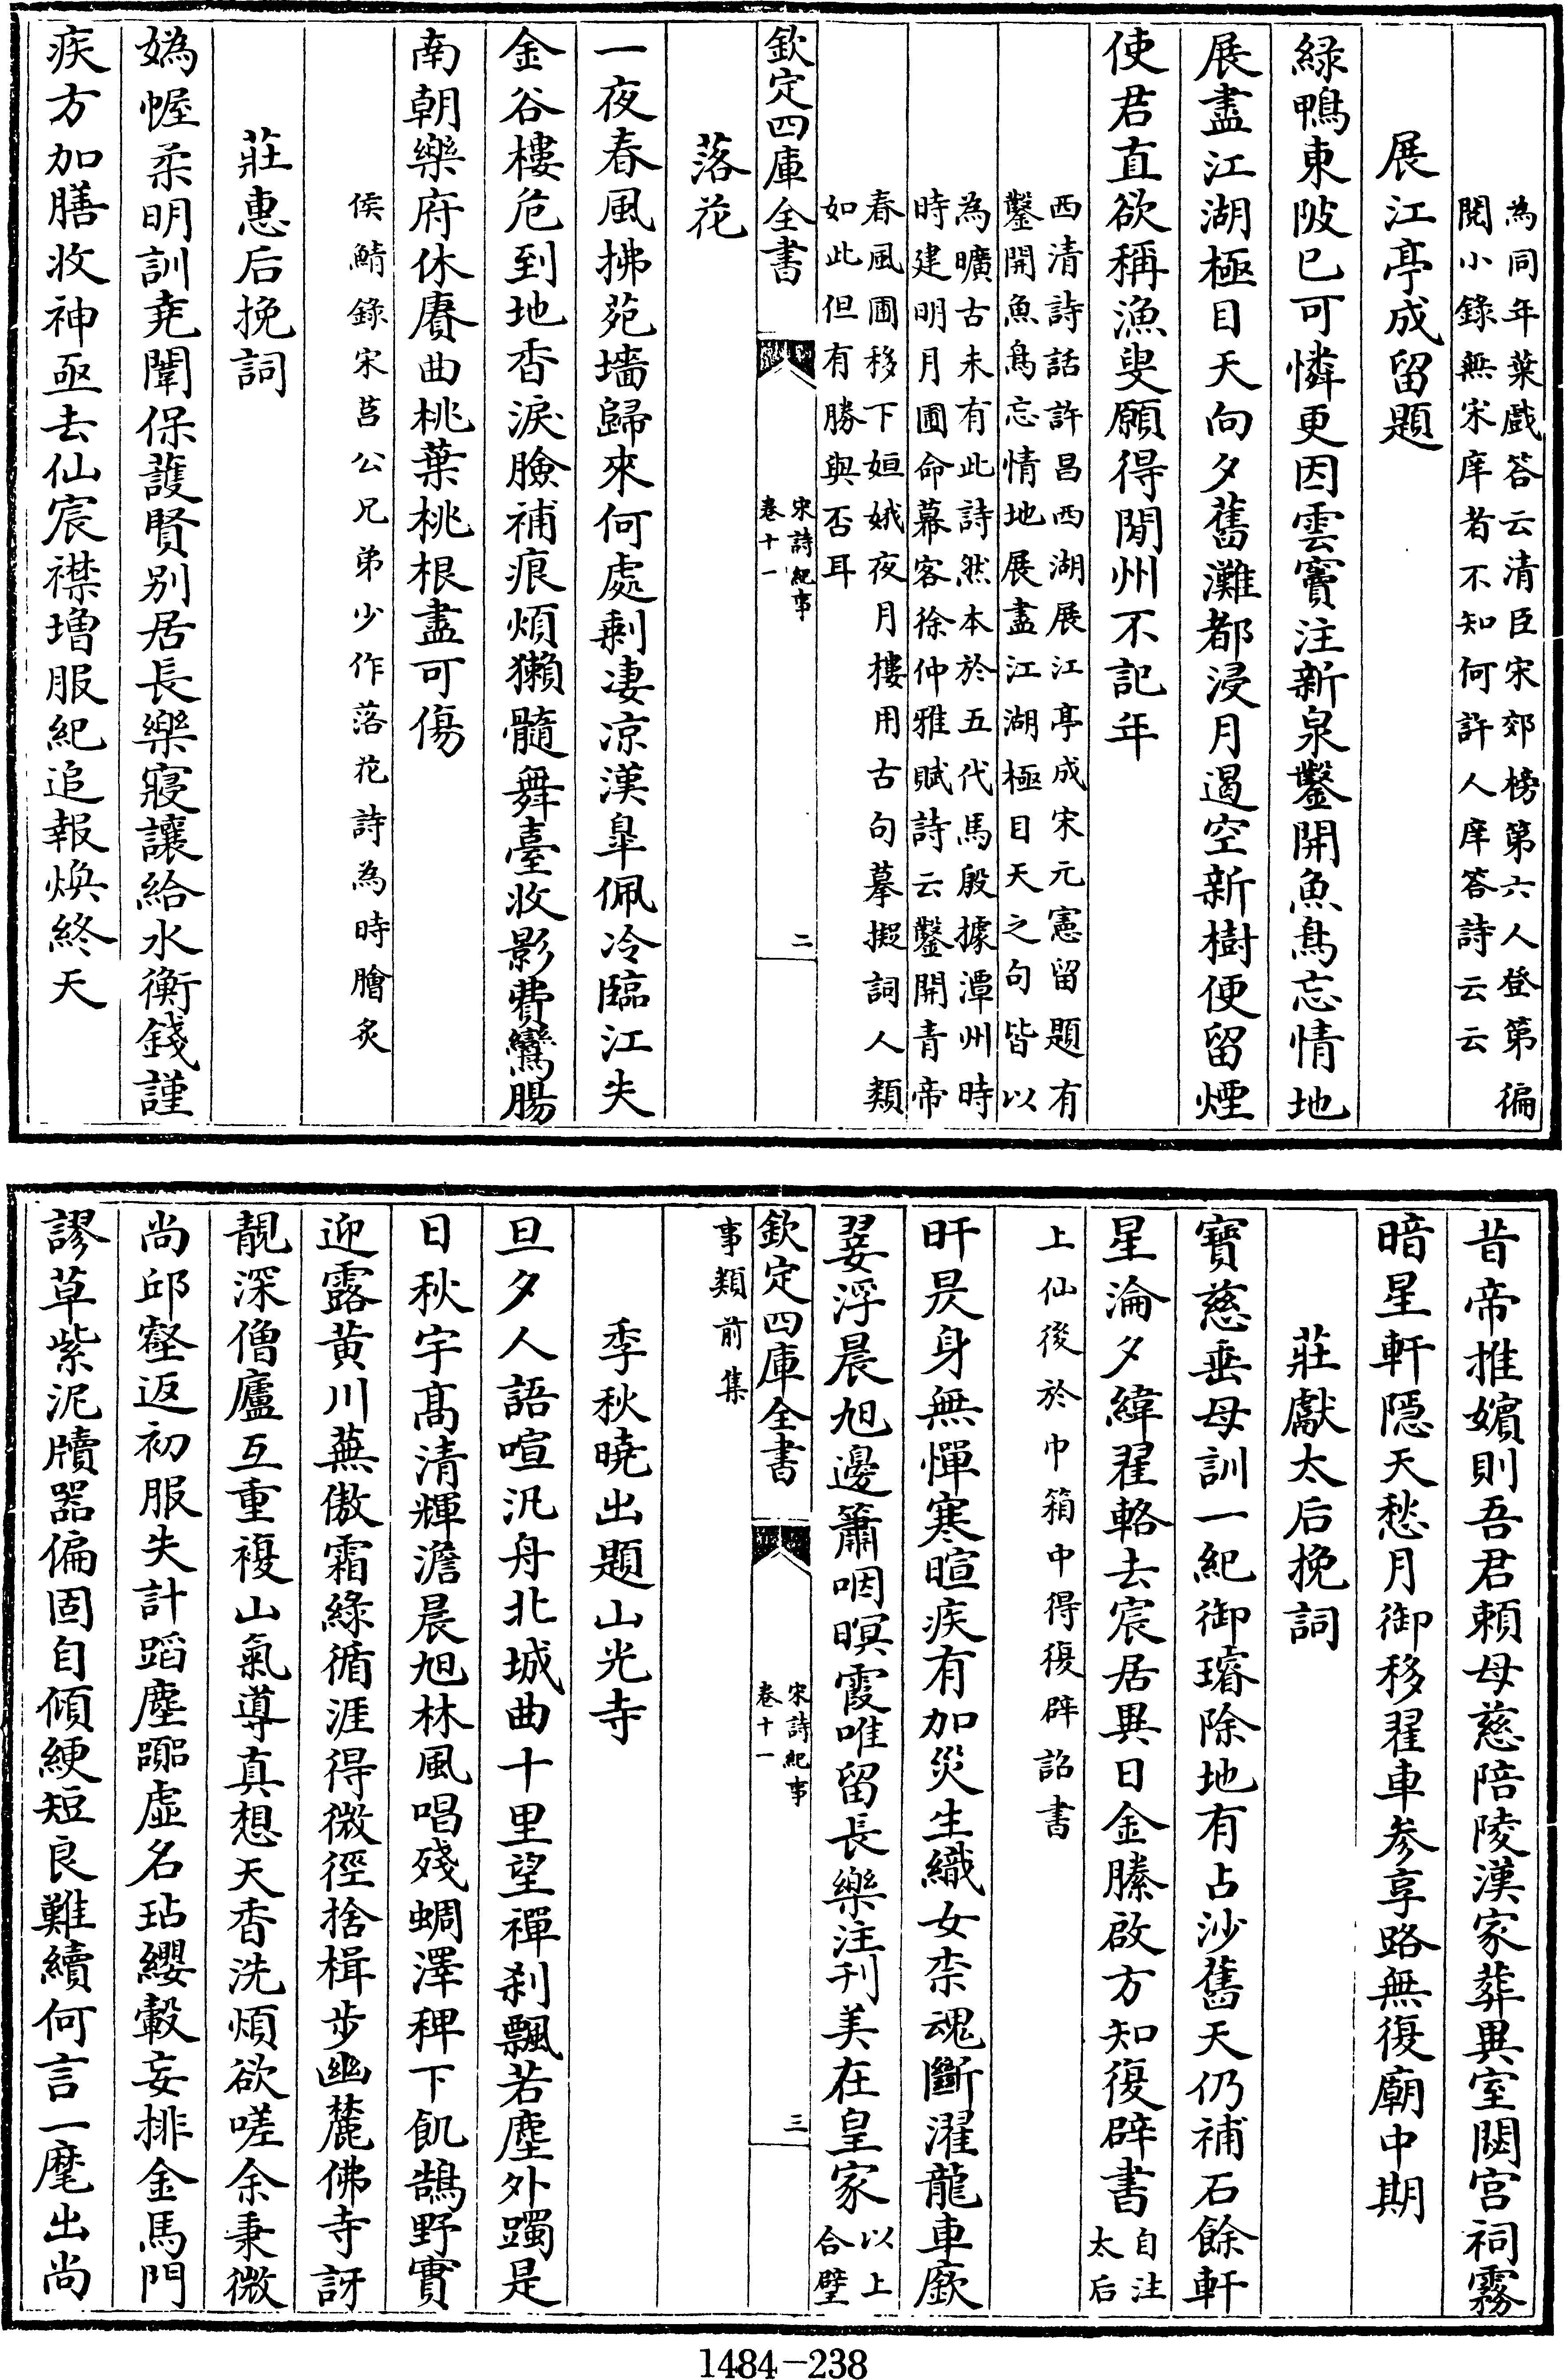 為同年葉戲答云清臣宋郊榜第六人登第徧
閱小錄無宋庠者不知何許人庠答詩云云
展江亭成留題
緑鴨東陂已可憐更因雲竇注新泉鑿開魚鳥忘情地
展盡江湖極目天向夕舊灘都浸月過空新樹便留煙
使君直欲稱漁叟願得閒州不記年
西清詩話許昌西湖展江亭成宋元憲留題有
鑿開魚鳥忘情地展盡江湖極目天之句皆以
為曠古未有此詩然本於五代馬殷據潭州時
時建明月圃命幕客徐仲雅賦詩云鑿開青帝
春風圃移下姮娥夜月樓用古句摹擬詞人類
如此但有勝與否耳
欽定四庫全書
宋詩紀事
卷十一
二
落花
一夜春風拂苑墻歸來何處剩凄凉漢臯佩冷臨江失
金谷樓危到地香淚臉補痕煩獺髓舞臺收影費鸞腸
南朝樂府休賡曲桃葉桃根盡可傷
侯鯖錄宋莒公兄弟少作落花詩為時膾炙
莊惠后挽詞
媯幄柔明訓堯闈保䕶賢别居長樂寢讓給水衡錢謹
疾方加膳收神亟去仙宸襟増服紀追報煥終天
昔帝推嬪則吾君頼母慈陪陵漢家葬異室閟宫祠霧
暗星軒隠天愁月御移翟車参享路無復廟中期
莊獻太后挽詞
寶慈垂母訓一紀御璿除地有占沙舊天仍補石餘軒
星淪夕緯翟輅去宸居異日金縢啟方知復辟書
自注
太后
上仙後於巾箱中得復辟詔書
旰昃身無憚寒暄疾有加災生織女柰魂斷濯龍車廞
翣浮晨旭邊簫咽暝霞唯留長樂注刋美在皇家
以上
合璧
事類前集
欽定四庫全書
宋詩紀事
卷十一
三
季秋曉出題山光寺
旦夕人語喧汎舟北城曲十里望禪刹飄若塵外躅是
日秋宇髙清輝澹晨旭林風唱殘蜩澤稗下飢鵠野實
迎露黄川蕪傲霜綠循涯得微徑捨楫步幽麓佛寺訝
靚深僧廬互重複山氣導真想天香洗煩欲嗟余秉微
尚邱壑返初服失計蹈塵羈虚名玷纓轂妄排金馬門
謬草紫泥牘器偏固自傾綆短良難續何言一麾出尚
1484-238